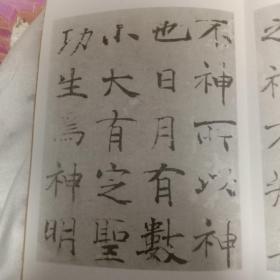 不神所以神
也日月有數
小大有定聖
功生焉神明
之